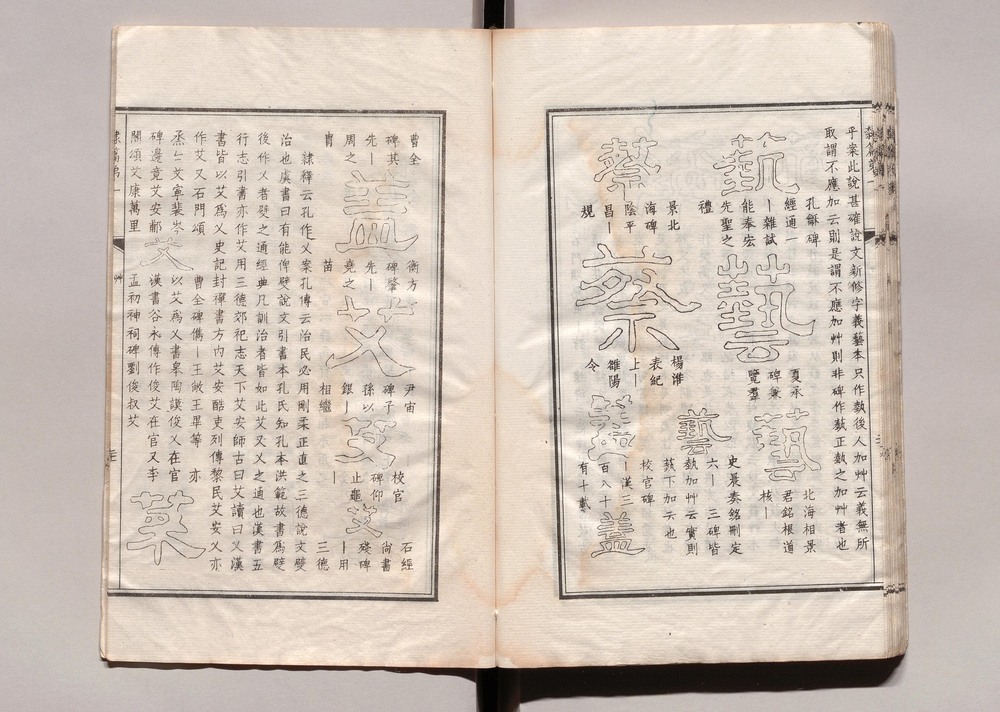 乎案此說甚確說文新修字義藝本只作埶後人加艸云義無所
取謂不應加云則是謂不應加艸則非碑作蓺正埶之加艸者也
藝
孔龢碑
經通一
丨雜試
能奉宏
先聖之
禮
藝
夏承
碑兼
覽群
藝
北海相景
君銘根道
核丨
藝
史晨奏銘刪定
六丨 三碑皆
埶加艸云實則
蓺下加云也
蔡
景北
海碑
陰平
昌丨
規
蔡
楊淮
表紀
上丨
雒陽
令
校官碑
丨漢三
百八十
有十載
蓋
曹全
碑其
先丨
周之
胄
蓋
衡方
碑肇
先丨
堯之
苗
艾
尹宙
碑子
孫以
銀丨
相繼
艾
校官
碑仰
止龜
丨
艾
石經
尚書
殘碑
丨用
三德
隸釋云孔作乂案孔傳云治民必用剛柔正直之三德說文嬖
治也虞書曰有能俾嬖說文引書本孔氏知孔本洪範故書爲嬖
後作乂者嬖之通經典凡訓治者皆如此艾又乂之通也漢書五
行志引書亦作艾用三德郊祀志天下艾安師古曰艾讀曰乂漢
書皆以艾爲乂史記封禪書方內艾安酷吏列傳黎民艾安乂亦
作艾又石門頌
烝烝艾寧裴岑
碑邊竟艾安郙
閣頌艾康萬里
艾
曹全碑儁丨王敞王畢等 亦
以艾爲乂書皋陶謨俊乂在官
漢書谷永傳作俊艾在官又李
孟初神祠碑劉俊叔艾
菜
隸篇弟一
艸